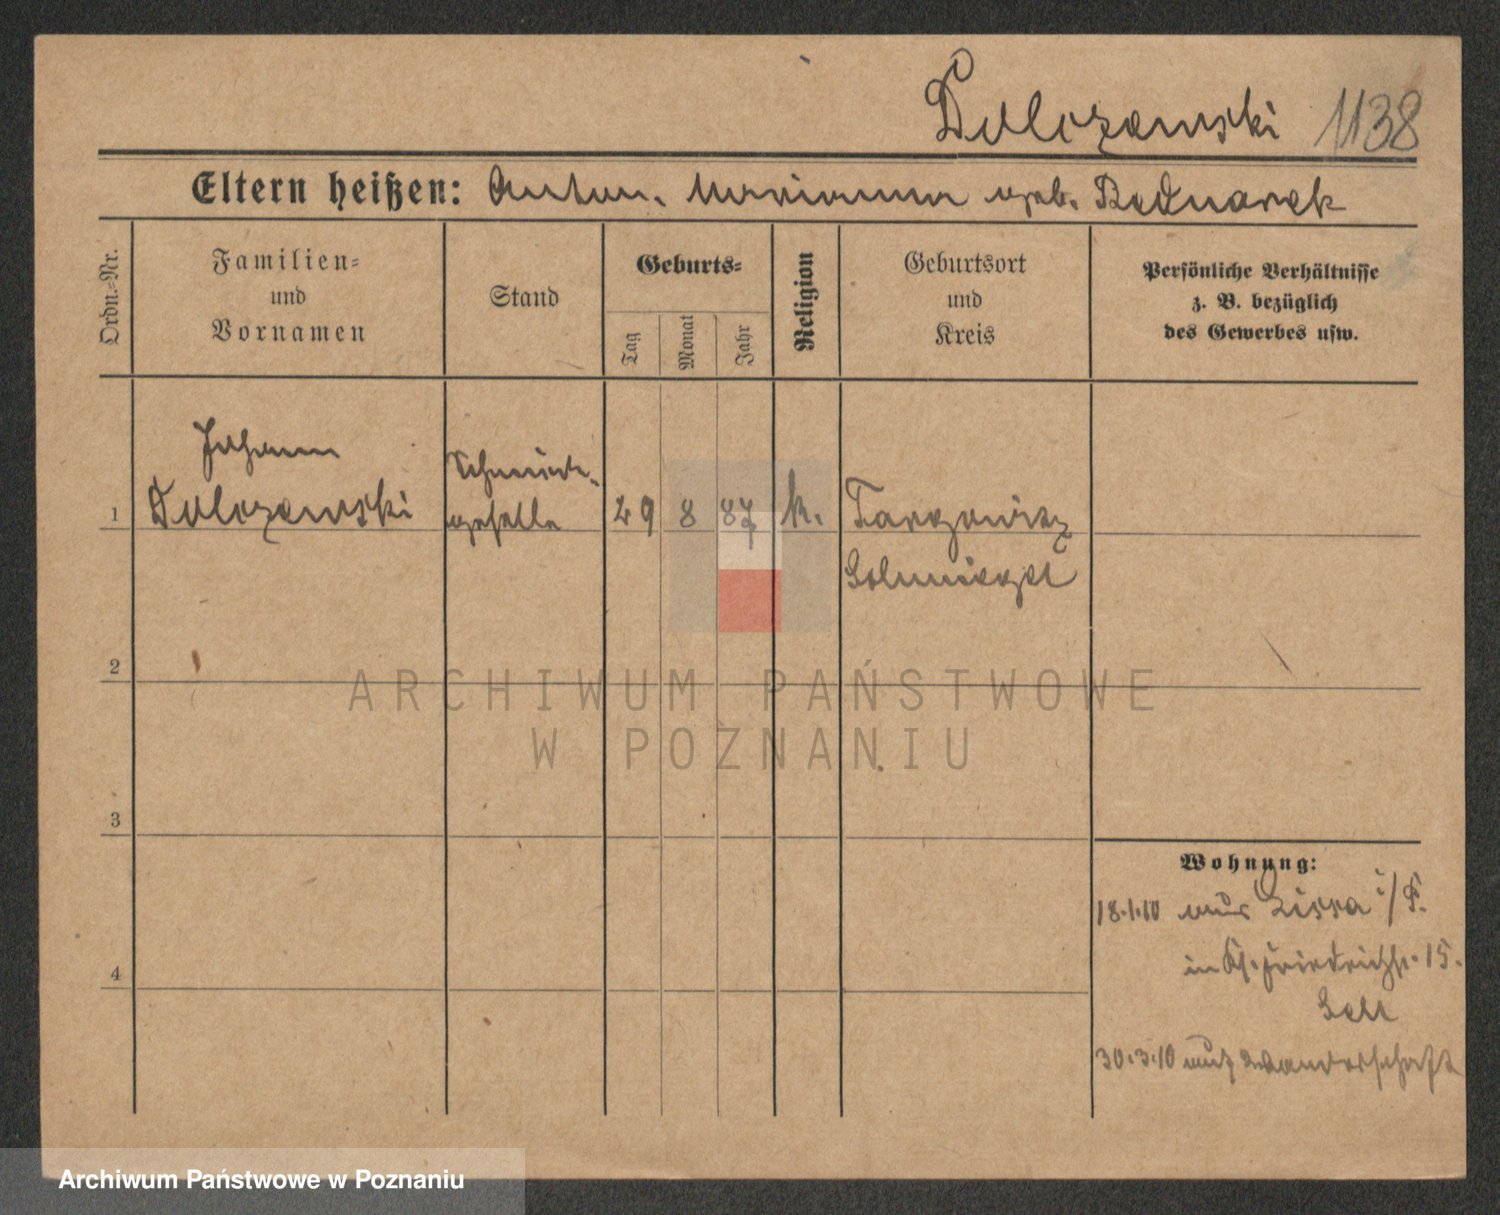 Dolczewski 1138
Eltern heißen: Anton. Marianna geb. Bednarek
Ordn.-Nr.
Familien-
und
Vornamen
Stand
Geburts-
Tag
Monat
Jahr
Religion
Geburtsort
und
Kreis
Persönliche Verhältnisse
z. B. bezüglich
des Gewerbes usw.
Johann
1 Dolczewski
Schmiede-
geselle
29 8 87 k.
Targowisz
Schmiegel
2
3
4
Wohnung:
18.1.10 aus Lissa i/P.
in Kl. Friedrichstr. 15.
30.3.10 auf Wanderschaft
ARCHIWUM PAŃSTWOWE
W POZNANIU
Archiwum Państwowe w Poznaniu